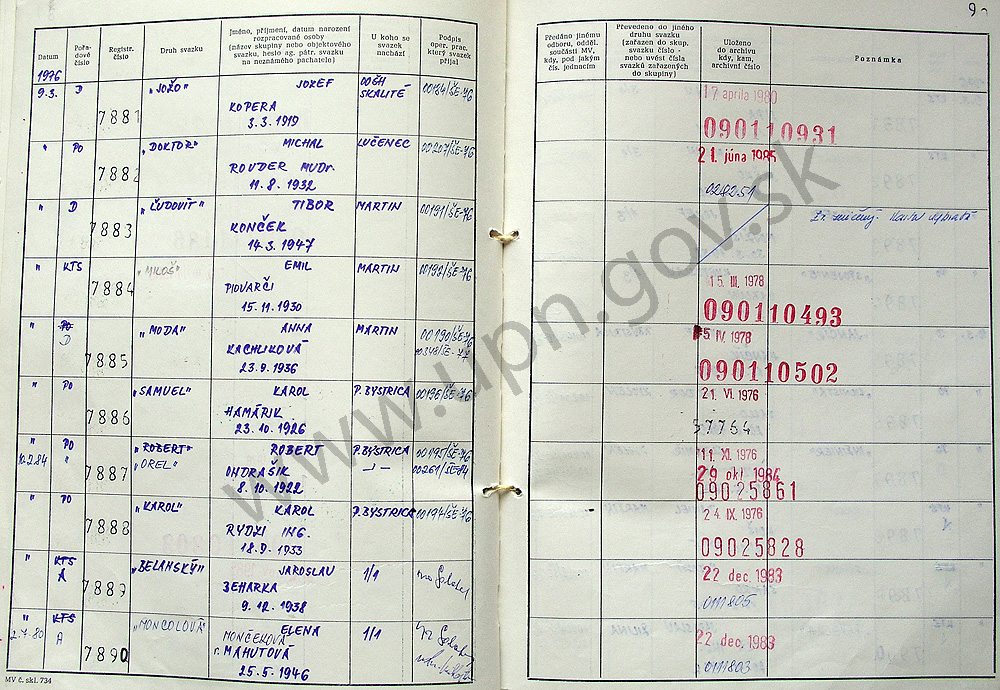 9
Datum
Pořadové číslo
Registr. číslo
Druh svazku
Jméno, příjmení, datum narození rozpracované osoby (název skupiny nebo objektového svazku, heslo ag. pátr. svazku na neznámého pachatele)
U koho se svazek nachází
Podpis oper. prac. který svazek přijal
Předáno jinému odboru, odděl. součásti MV, kdy, pod jakým čís. jednacím
Převedeno do jiného druhu svazku (zařazen do skup. svazku číslo - nebo uvést čísla svazků zařazených do skupiny)
Uloženo do archivu kdy, kam, archivní číslo
Poznámka
1976
9.3. D 7881 "JOŽO" JOZEF OOSH SKALITÉ 00184/ŠE-76 17 apríla 1980
KOPERA 090110931
3.3.1919
" PO 7882 "DOKTOR" MICHAL LUČENEC 00207/ŠE-76 21. júna 1985
ROUDER MUDr.
11.8.1932
" D 7883 "ĽUDOVÍT" TIBOR MARTIN 00191/ŠE-76
KONČEK
14.3.1947
" KTS 7884 "MILOŠ" EMIL MARTIN 00192/ŠE-76 15. III. 1978
PIOVARČI 090110493
15.11.1930
" PO D 7885 "MODA" ANNA MARTIN 00190/ŠE-76 5. IV. 1978
KACHLIKOVÁ 090110502
23.9.1936
" PO 7886 "SAMUEL" KAROL P. BYSTRICA 00196/ŠE-76 21. VI. 1976
HAMÁRIK 37764
23.10.1926
" PO 7887 "ROBERT" ROBERT P. BYSTRICA 00195/ŠE-76 11. XI. 1976
10.2.84 " "OREL" ONDRAŠIK 00261/ŠE-84 29 okt. 1984
8.10.1922 09025861
" PO 7888 "KAROL" KAROL P. BYSTRICA 00194/ŠE-76 24. IX. 1976
RYDZI ING. 09025828
18.9.1933
" KTS A 7889 "BELANSKÝ" JAROSLAV 1/1 22 dec. 1983
BEHARKA 0111805
9.12.1938
" KTS 7890 "MONCOLOVÁ" ELENA 1/1 22 dec. 1983
2.7.80 A MONČEKOVÁ 0111803
r. MAHUTOVÁ
25.5.1946
MV č. skl. 734
www.upn.gov.sk